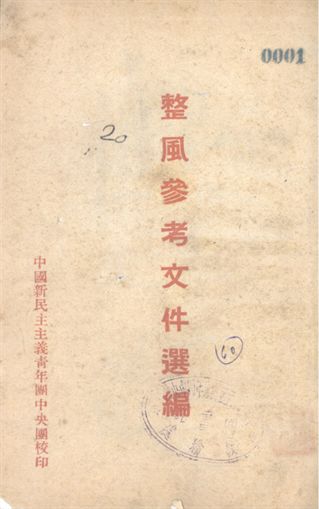 0001
20
整風參考文件選編
60
中國新民主主義青年團中央團校印